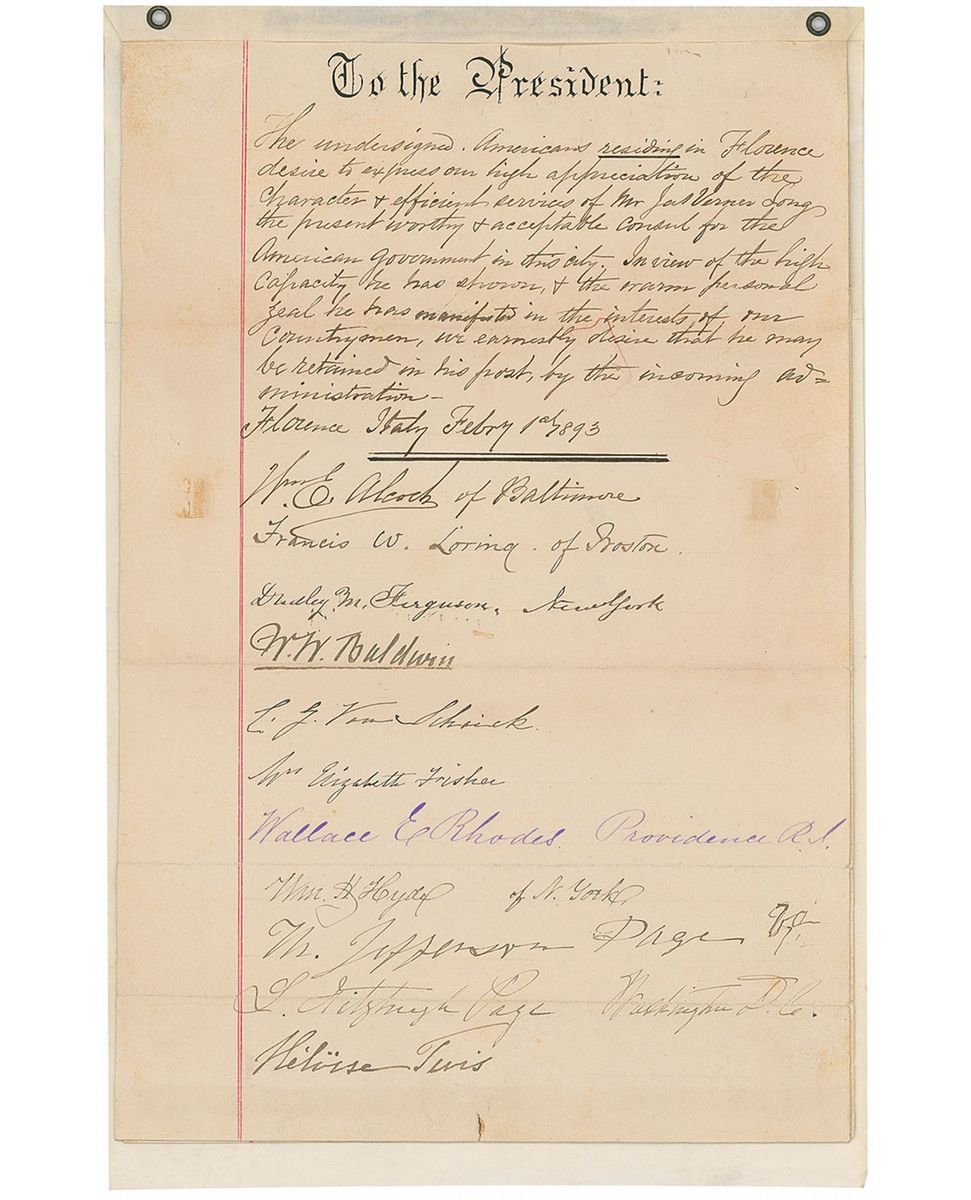 To the President:
The undersigned. Americans residing in Florence
desire to express our high appreciation of the
character & efficient services of Mr Jas Verner Long
the present worthy & acceptable consul for the
American government in this city. In view of the high
capacity he has shown, & the warm personal
zeal he has manifested in the interests of our
Countrymen, we earnestly desire that he may
be retained in his post, by the incoming ad=
ministration -
Florence Italy Febry 1st/1893
Wm E. Alcock of Baltimore
Francis W. Loring. of Boston.
Dudley M. Ferguson. New York
W. W. Baldwin
Van Schaick.
Mrs Elizabeth Fisher
Wallace E Rhodes. Providence R.I.
Wm. H Hyde of N. York
Th. Jefferson Page Va
L. Fitzhugh Page Washington D.C.
Héloïse Tevis